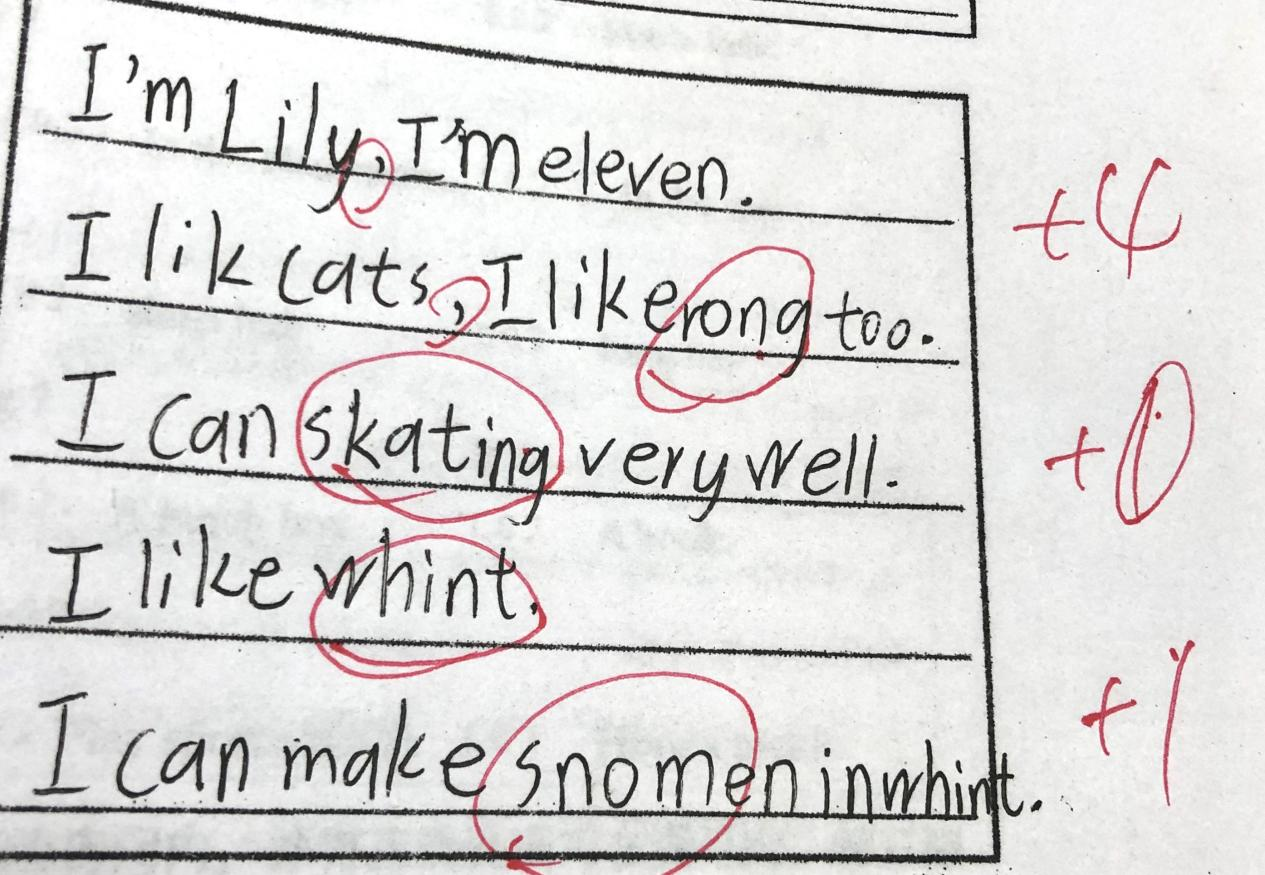 I'm Lily, I'm eleven. +4
I lik cats, I like rong too.
I can skating very well. +0
I like whint.
I can make snomen in whint. +1